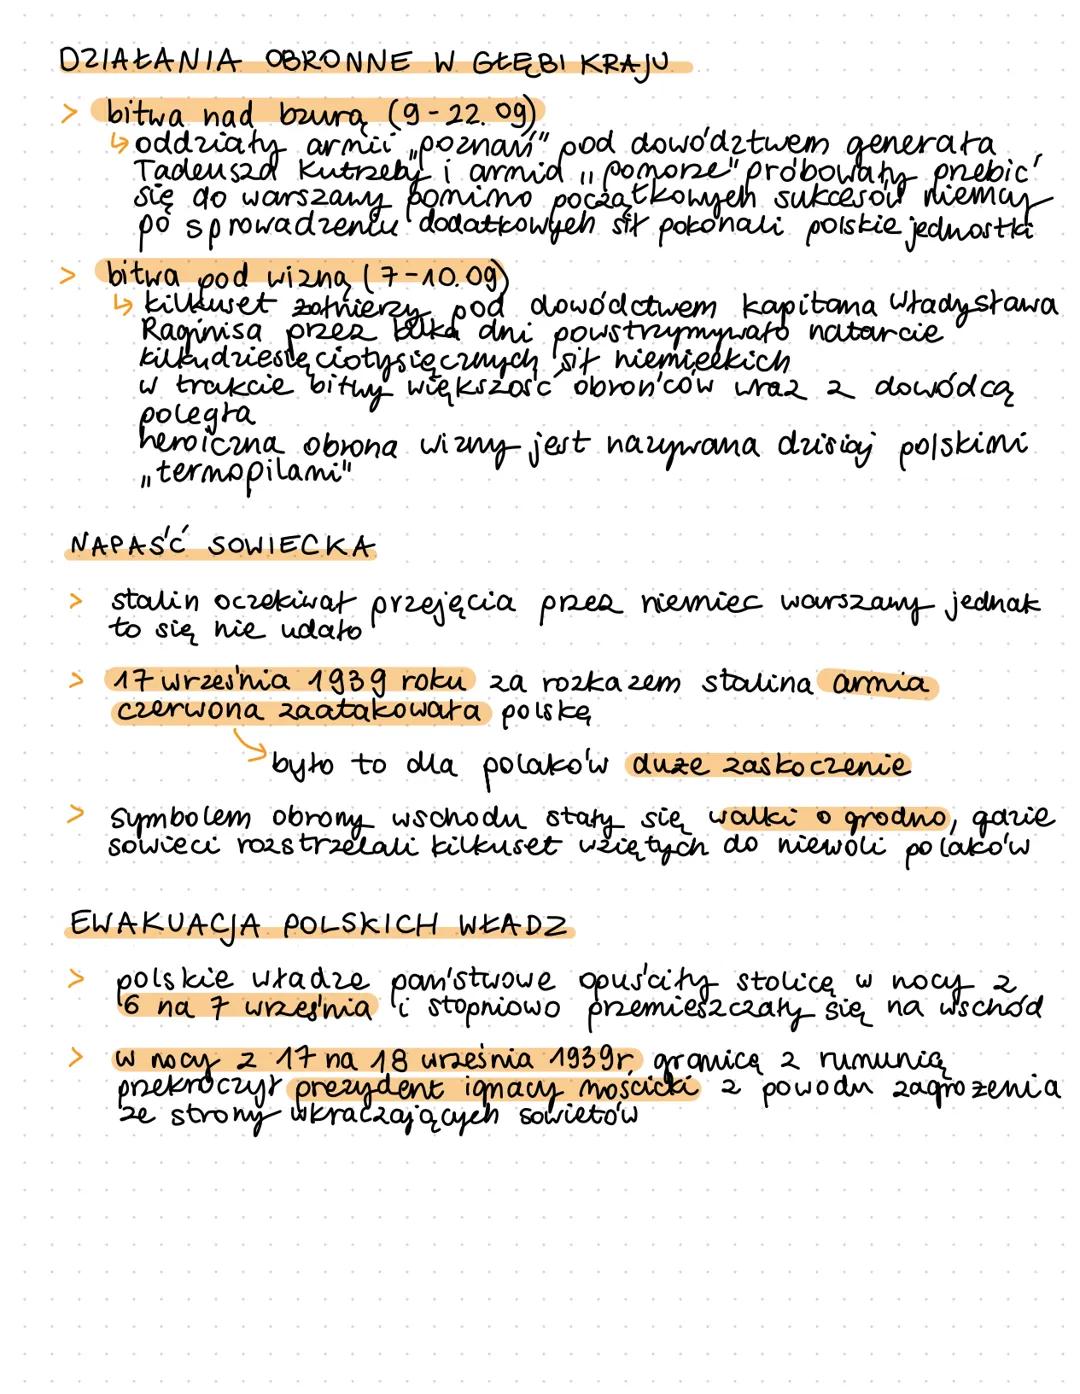 DZIAŁANIA OBRONNE W GŁĘBI KRAJU
> bitwa nad bzurą (9-22.09)
↳ oddziały armii „poznań" pod dowództwem generała
Tadeusza Kutrzeby i armia „pomorze" próbowały przebić
się do warszawy pomimo początkowych sukcesów niemcy
po sprowadzeniu dodatkowych sił pokonali polskie jednostki
> bitwa pod wizną (7-10.09)
↳ kilkuset żołnierzy pod dowództwem kapitana Władysława
Raginisa przez kilka dni powstrzymywało natarcie
kilkudziesięciotysięcznych sił niemieckich
w trakcie bitwy większość obrońców wraz z dowódcą
poległa
heroiczna obrona wizny jest nazywana dzisiaj polskimi
„termopilami"
NAPAŚĆ SOWIECKA
> stalin oczekiwał przejęcia przez niemiec warszawy jednak
to się nie udało
> 17 września 1939 roku za rozkazem stalina armia
czerwona zaatakowała polskę
było to dla polaków duże zaskoczenie
> symbolem obrony wschodu stały się walki o grodno, gdzie
sowieci rozstrzelali kilkuset wziętych do niewoli polaków
EWAKUACJA POLSKICH WŁADZ
> polskie władze państwowe opuściły stolicę w nocy z
6 na 7 września i stopniowo przemieszczały się na wschód
> w nocy z 17 na 18 września 1939r granicę z rumunią
przekroczył prezydent ignacy mościcki z powodu zagrożenia
ze strony wkraczających sowietów